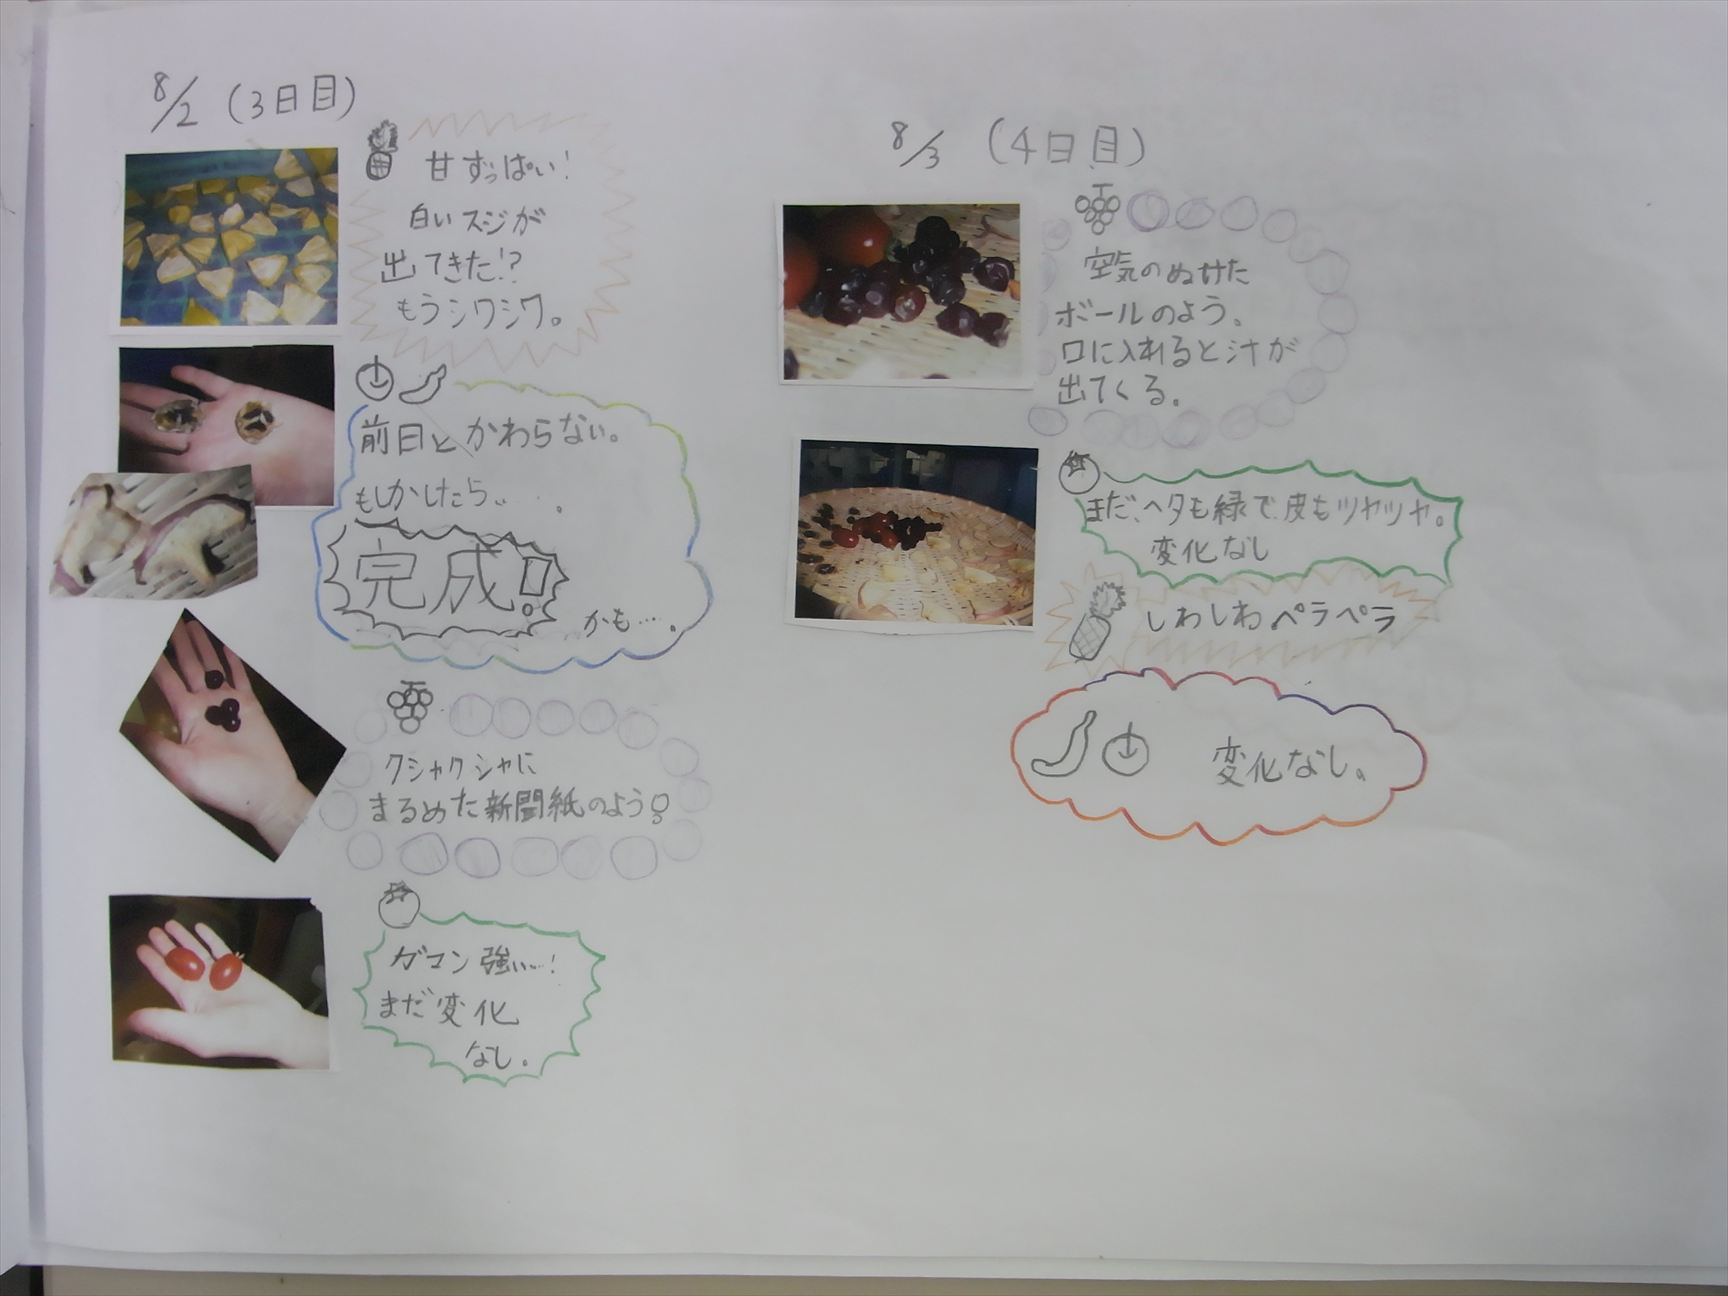 8/2 (3日目)
甘ずっぱい!
白いスジが
出てきた!?
もうシワシワ。
前日とかわらない。
もしかしたら、、…。
完成!
かも…。
クシャクシャに
まるめた新聞紙のよう!
ガマン強い…!
まだ変化
なし。
8/3 (4日目)
空気のぬけた
ボールのよう。
口に入れると汁が
出てくる。
まだ、ヘタも緑で、皮もツヤツヤ。
変化なし
しわしわペラペラ
変化なし。